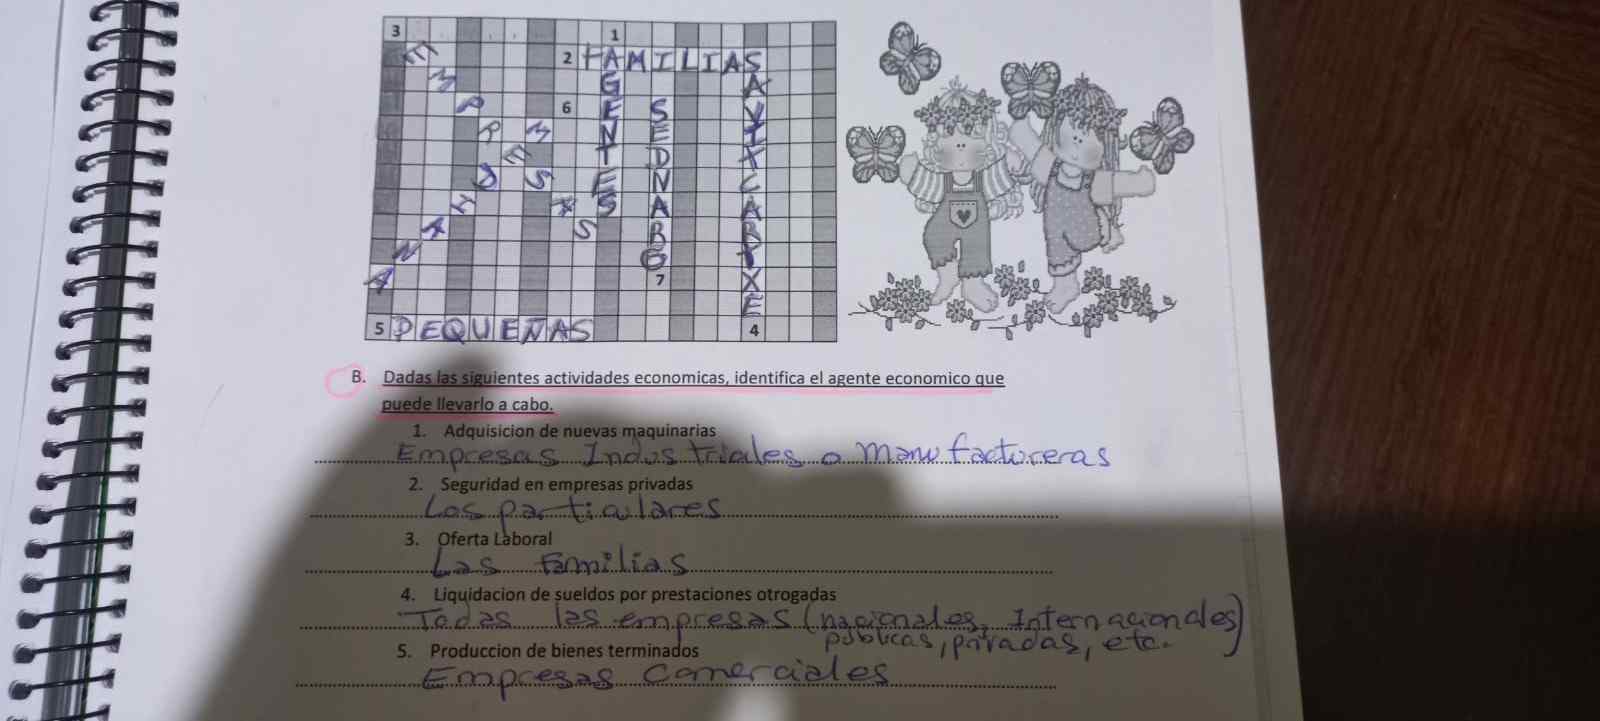 3 1
2 FAMILIAS
6
EMPRESAS
AGENTES
SEDNABO
7
5 PEQUEÑAS 4
B. Dadas las siguientes actividades economicas, identifica el agente economico que
puede llevarlo a cabo.
1. Adquisicion de nuevas maquinarias
Empresas Industriales o manufactureras
2. Seguridad en empresas privadas
Los particulares
3. Oferta Laboral
Las familias
4. Liquidacion de sueldos por prestaciones otrogadas
Todas las empresas (nacionales, Internacionales)
publicas, privadas, etc.
5. Produccion de bienes terminados
Empresas Comerciales